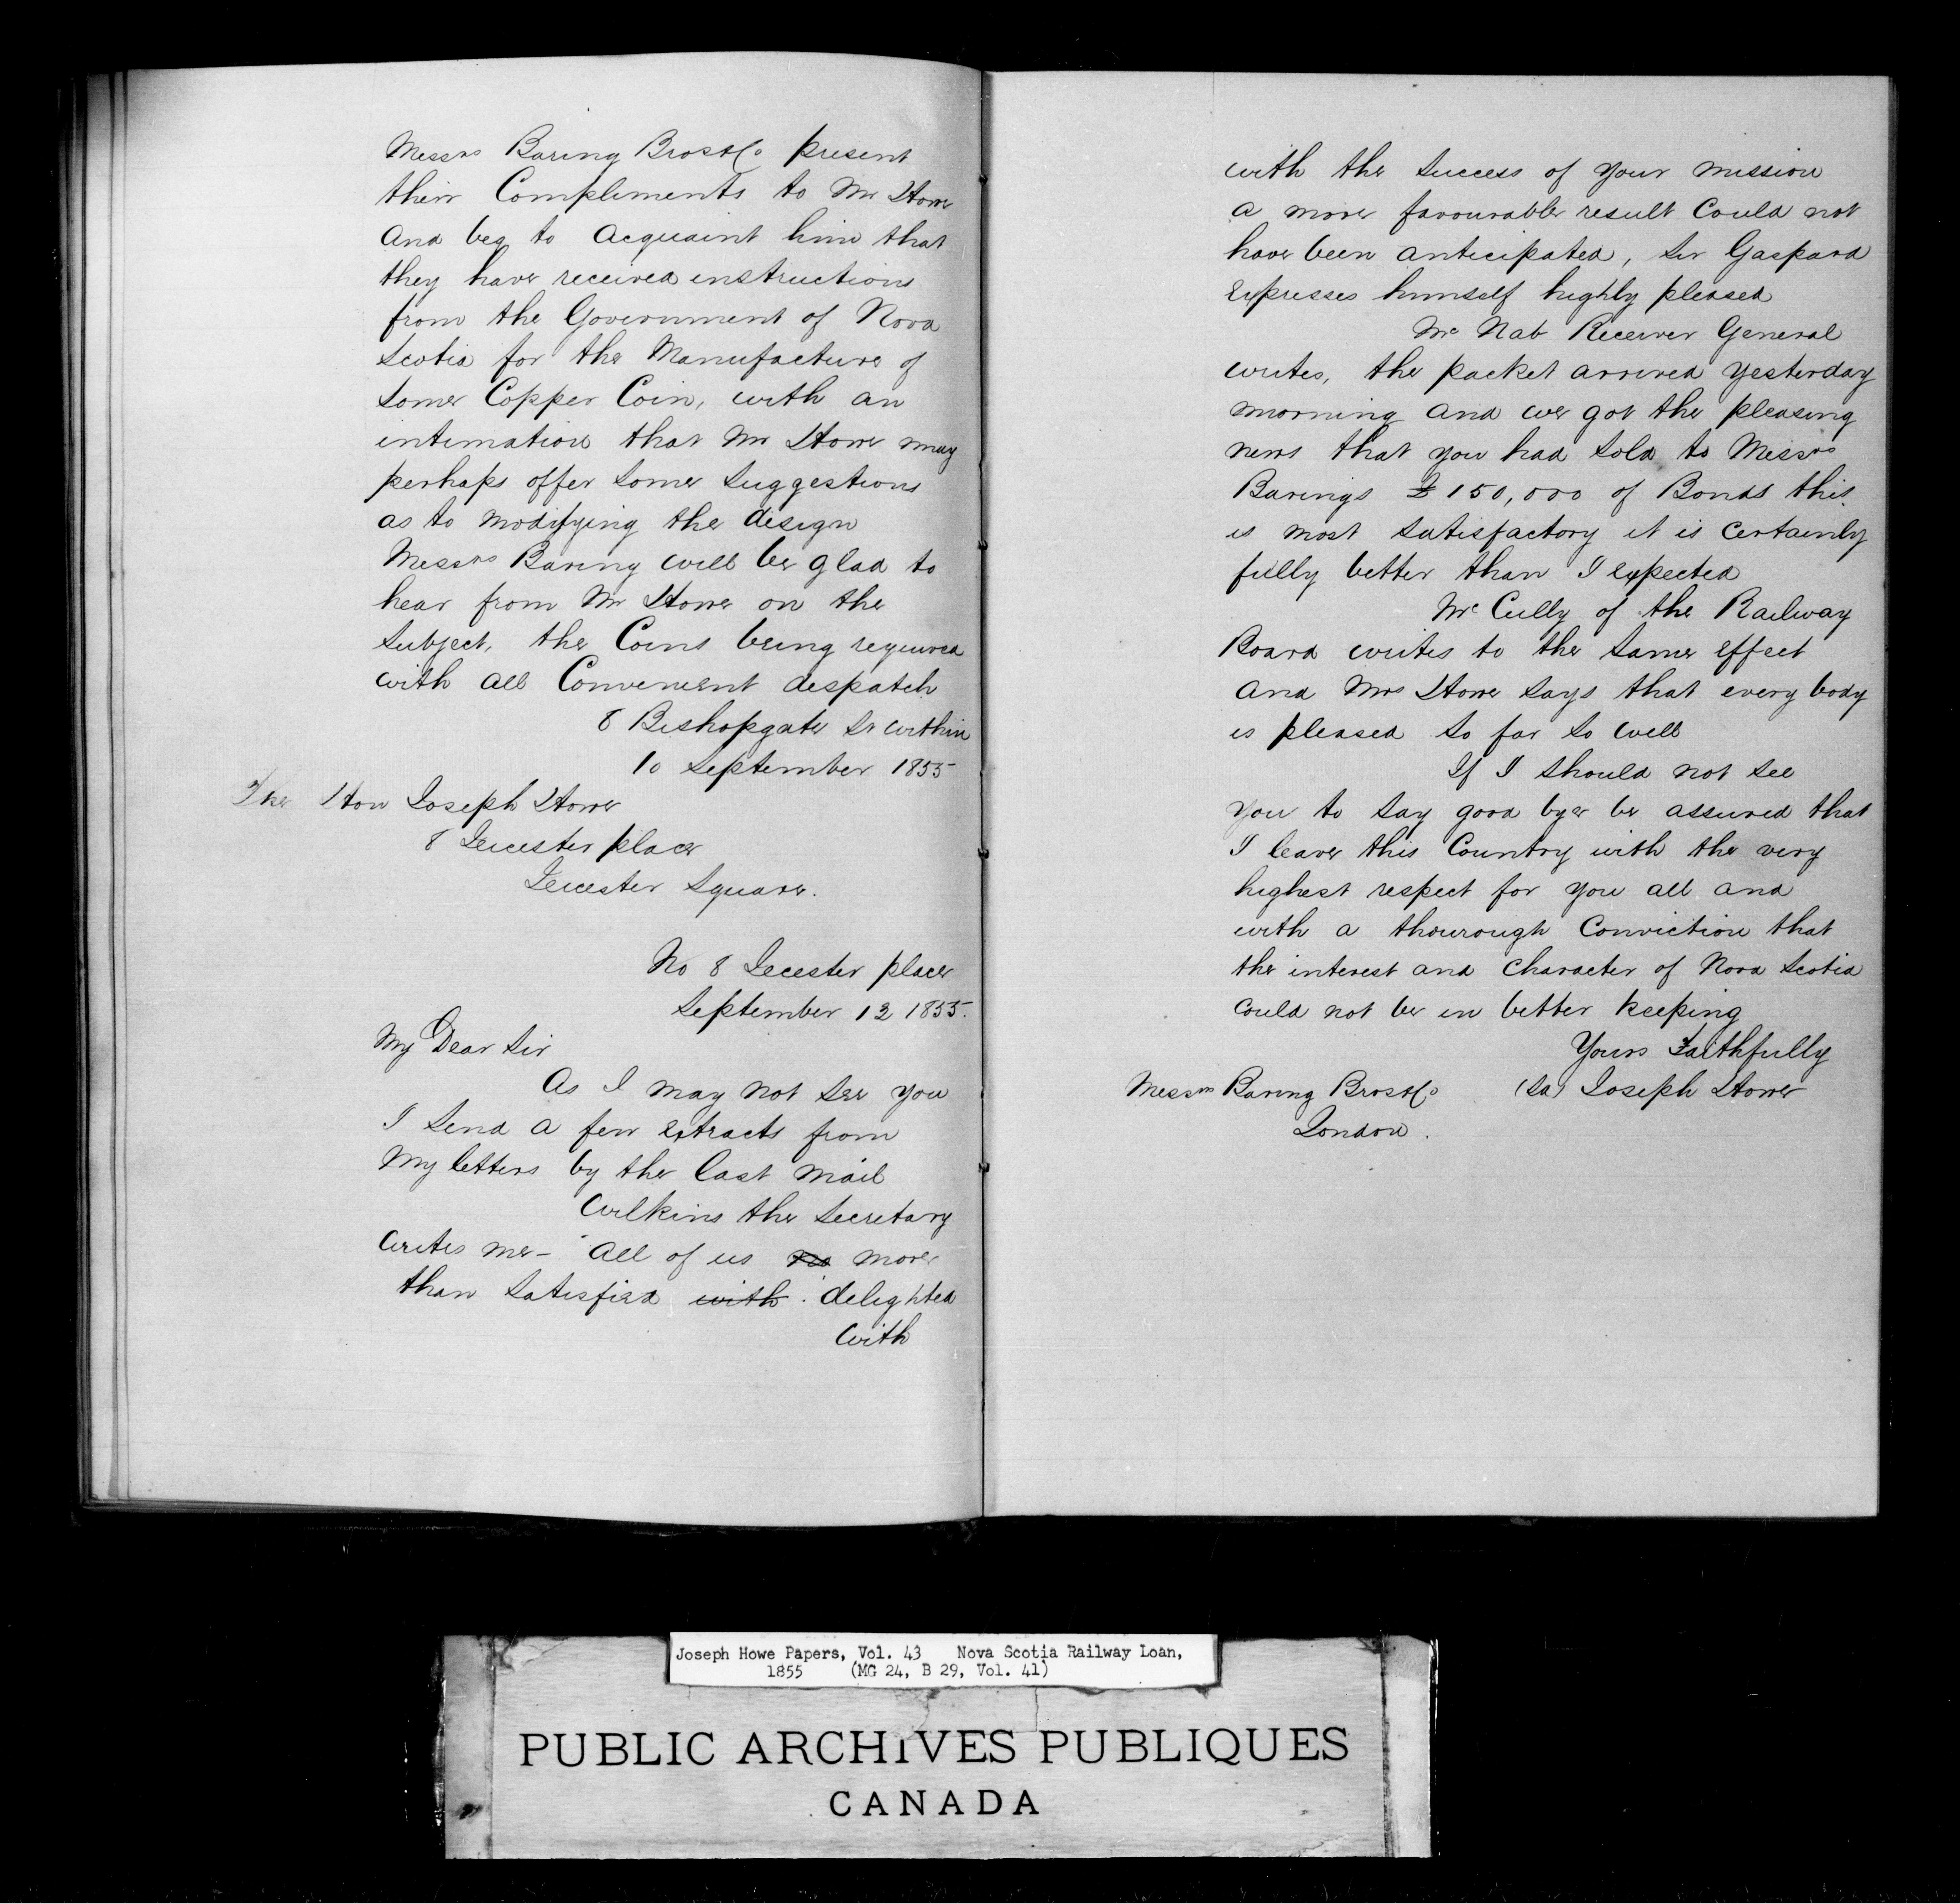 Messrs Baring Bros & Co present
their Compliments to Mr Howe
and beg to acquaint him that
they have received instructions
from the Government of Nova
Scotia for the Manufacture of
some Copper Coin, with an
intimation that Mr Howe may
perhaps offer some suggestions
as to modifying the design
Messrs Baring will be glad to
hear from Mr Howe on the
subject, the Coins being required
with all Convenient despatch
8 Bishopgate St within
10 September 1855
The Hon Joseph Howe
8 Leicester place
Leicester Square.
No 8 Leicester place
September 12 1855.
My Dear Sir
As I may not see you
I send a few extracts from
My letters by the last mail
Wilkins the Secretary
writes me - "All of us no more
than satisfied with delighted
with
with the success of your mission
a more favourable result could not
have been anticipated, Sir Gaspard
expresses himself highly pleased
Mc Nab Receiver General
writes, the packet arrived yesterday
morning and we got the pleasing
news that you had sold to Messrs
Barings £150,000 of Bonds this
is most satisfactory it is certainly
fully better than I expected
Mc Cully of the Railway
Board writes to the same effect
and Mrs Howe says that every body
is pleased so far so well
If I should not see
you to say good bye be assured that
I leave this Country with the very
highest respect for you all and
with a thourough conviction that
the interest and character of Nova Scotia
could not be in better keeping
Yours Faithfully
Messrs Baring Bros & Co (Sd) Joseph Howe
London.
Joseph Howe Papers, Vol. 43 Nova Scotia Railway Loan,
1855 (MG 24, B 29, Vol. 41)
PUBLIC ARCHIVES PUBLIQUES
CANADA